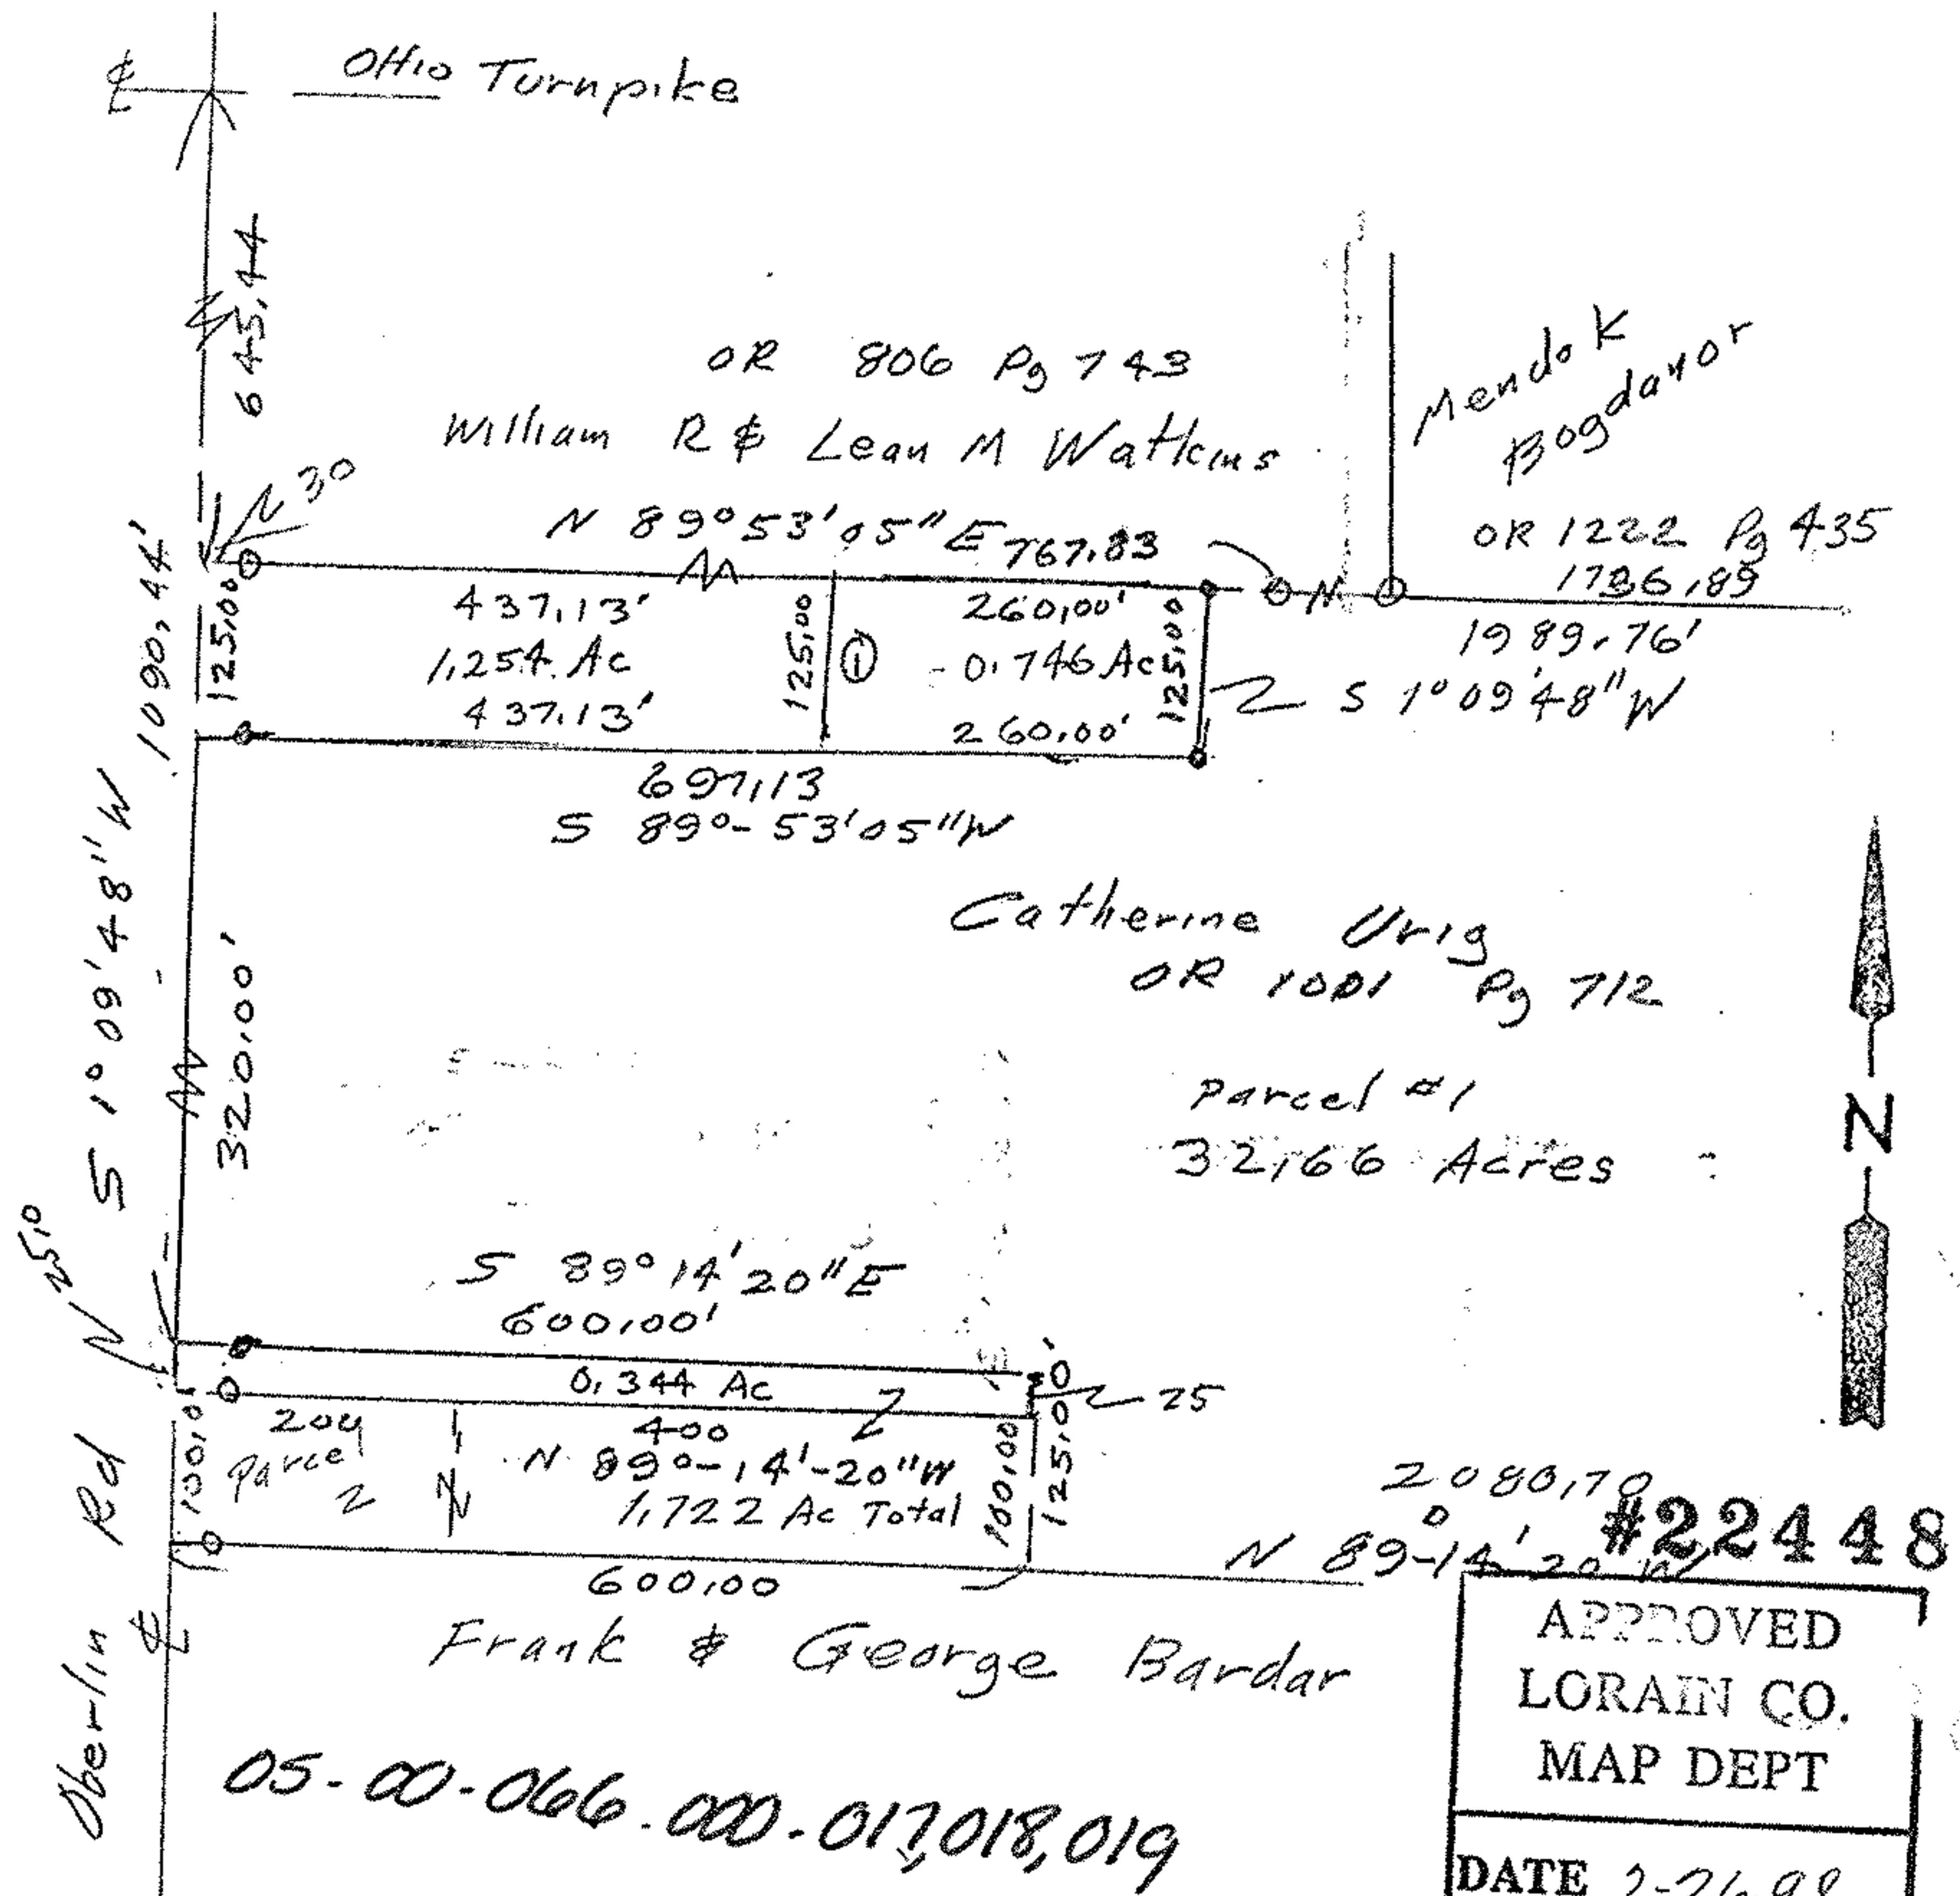 Ohio Turnpike
645.44
OR 806 Pg 743
William R & Lean M Watkins
Mendok
Bogdanor
OR 1222 Pg 435
N 30
N 89°53'05"E 767.83
1736.89
1989.76'
1090.44'
125.00
437.13'
1.254 Ac
437.13'
125.00
1
260.00'
0.746 Ac
260.00'
125.00
S 1°09'48"W
697.13
S 89°-53'05"W
S 1°09'48"W
320.00'
Catherine Urig
OR 1001 Pg 712
Parcel #1
32.66 Acres
N
S 89°14'20"E
600.00'
0.344 Ac
25
100.0
Parcel
2
400
N 89°-14'-20"W
1.722 Ac Total
100.00
125.00'
600.00
2080.70
N 89-14'20"W
#22448
Frank & George Bardar
Oberlin Rd
05-00-066-000-017,018,019
APPROVED
LORAIN CO.
MAP DEPT
DATE 2-26-98